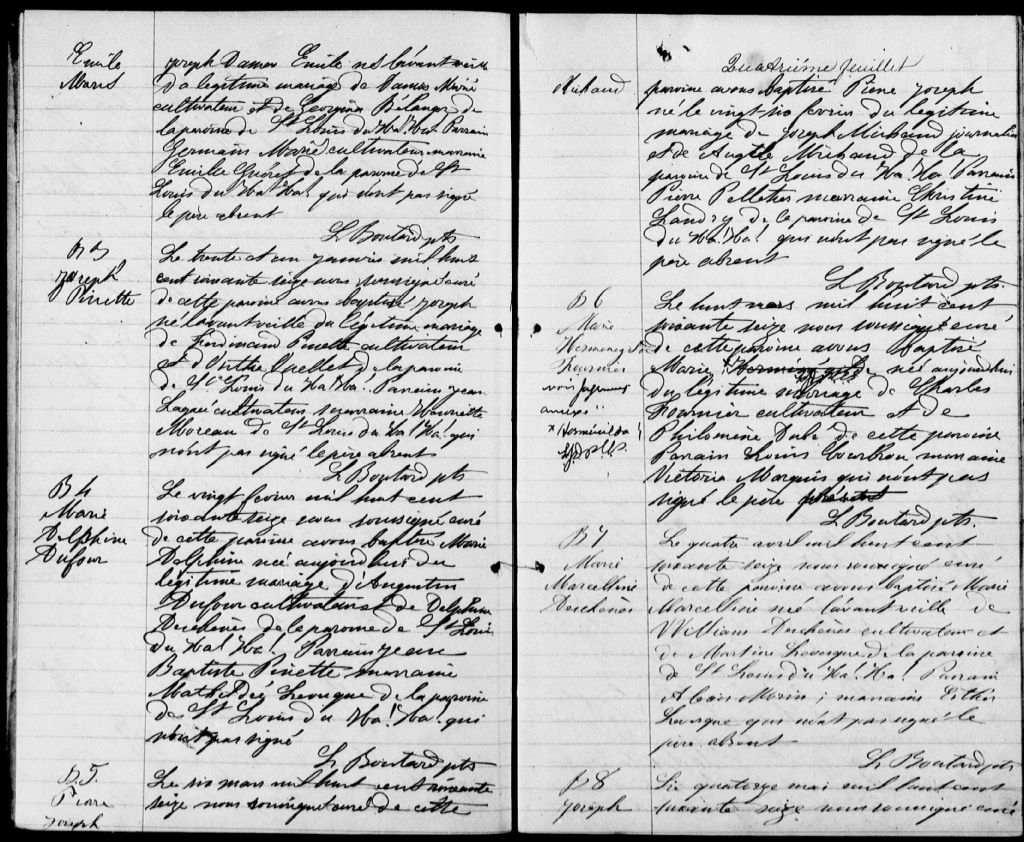 Emile
Marié
joseph Damas Emile né lavant veille
du legitime mariage de Damas Marié
cultivateur et de Georgina Bélanger de
la paroisse de St Louis du Ha! Ha! Parrain
Germain Marié cultivateur marraine
Emilie de la paroisse de St
Louis du Ha! Ha! qui n'ont pas signé
le père absent
L Boutard ptr
B 3
joseph
Pinette
Le trente et un janvier mil huit
cent soixante seize nous soussigné curé
de cette paroisse avons baptisé joseph
né lavant veille du légitime mariage
de Ferdinand Pinette cultivateur
et d'Esther Ouellet de la paroisse
de St Louis du Ha! Ha! Parrain jean
Lagacé cultivateur marraine Henriette
Moreau de St Louis du Ha! Ha! qui
n'ont pas signé le père absent
L Boutard ptr
B 4
Marie
Delphine
Dufour
Le vingt fevrier mil huit cent
soixante seize nous soussigné curé
de cette paroisse avons baptisé Marie
Delphine née aujourdhui du
légitime mariage d'Augustin
Dufour cultivateur et de Delphine
Deschènes de la paroisse de St Louis
du Ha! Ha! Parrain jean
Baptiste Pinette marraine
Levesque de la paroisse
de St Louis du Ha! Ha! qui
n'ont pas signé
L Boutard ptr
B.5.
Pierre
joseph
Le six mars mil huit cent soixante
seize nous soussigné curé de cette
Quatrième feuillet
Michaud
paroisse avons baptisé Pierre joseph
né le vingt fevrier du légitime
mariage de joseph Michaud journalier
et de Angèle Michaud de la
paroisse de St Louis du Ha! Ha! Parrain
Pierre Pelletier marraine Christine
Landry de la paroisse de St Louis
du Ha! Ha! qui n'ont pas signé le
père absent
L Boutard ptr
B 6
Marie
Hermenegilde
Fournier
voir jugement
annexé
x Herménilda
Le huit mars mil huit cent
soixante seize nous soussigné curé
de cette paroisse avons baptisé
Marie née aujourdhui
du légitime mariage de Charles
Fournier cultivateur et de
Philomène Dubé de cette paroisse
Parrain Louis Courbron marraine
Victoria Marquis qui n'ont pas
signé le père
L Boutard ptr.
B 7
Marie
Marcelline
Deschenes
Le quatre avril mil huit cent
soixante seize nous soussigné curé
de cette paroisse avons baptisé Marie
Marcelline née lavant veille de
William Deschènes cultivateur et
de Martine Levesque de la paroisse
de St Louis du Ha! Ha! Parrain
Morin; marraine Esther
Levesque qui n'ont pas signé le
père absent
L Boutard ptr
B 8
joseph
Le quatorze mai mil huit cent
soixante seize nous soussigné curé